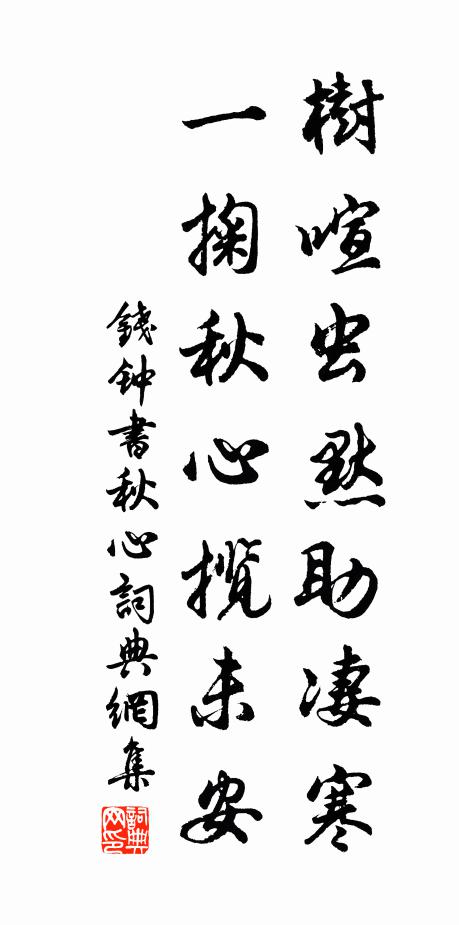 樹喧虫默助凄寒
一掬秋心揽未安
錢钟書秋心詞典網集
詞典网印